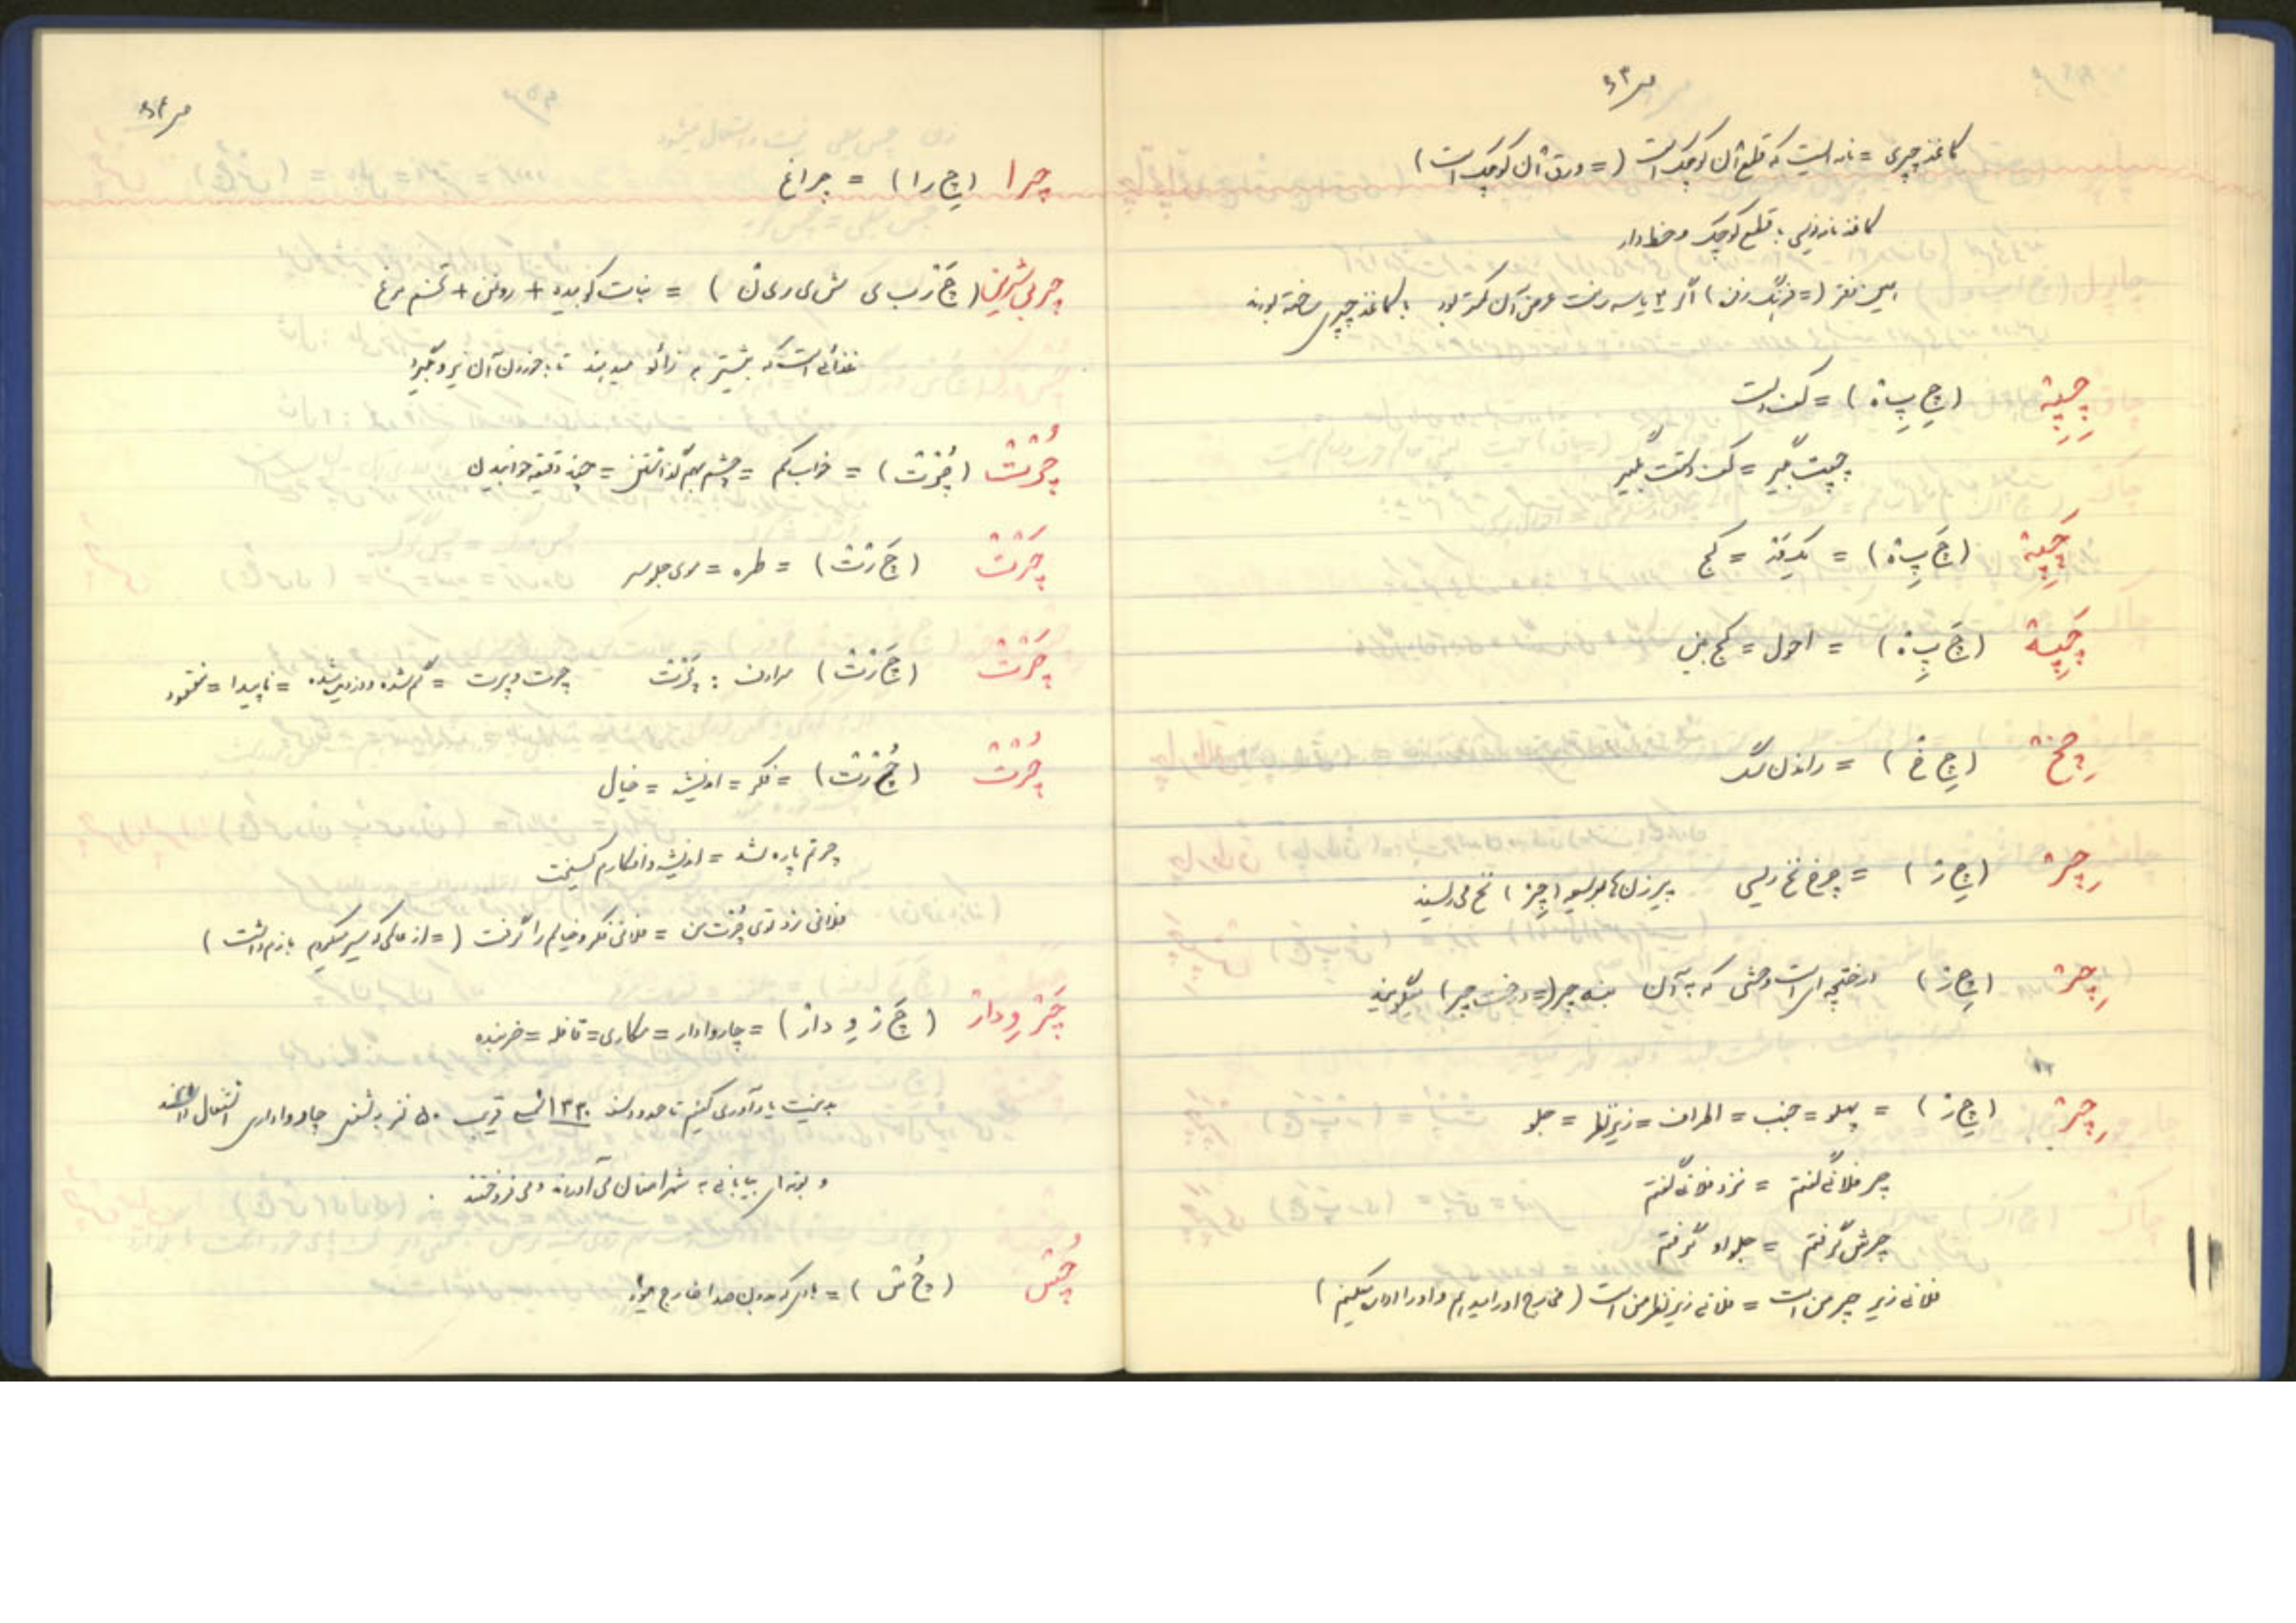 کاغذ چپری = نامه ایست که قطع آن کوچک است (= ورق آن کوچک است)
کاغذ نازنویسی با قطع کوچک و خط دار
(= فرنگ رفتن) اگر ۲ یا سه عرض آن کمتر بود با کاغذ چپری ساخته بودند
چِپِة (چِ پِ ة) = کف دست
چپت بگیر = کف دستت بگیر
چَپِة (چَ پِ ة) = یکوَر = کج
چَپِة (چَ پِ ة) = احول = کج بین
چِخ (چِ خ) = راندن سگ
چِر (چِ ر) = چرخ نخ ریسی پیرزن ها بوسیله (چِر) نخ می ریسند
چِر (چِ ر) درختچه ای است وحشی که به آن بنه چر (= درخت چر) میگویند
چِر (چِ ر) = پهلو = جنب = اطراف = زیر نظر = جلو
چر فلانی گفتم = نزد فلانی گفتم
چرش گرفتم = جلو او گرفتم
فلانی زیر چر من است = فلانی زیر نظر من است (خارج او را میدهم و او را اداره میکنم)
چرا (چِ را) = چراغ
چربی شیرین (چَ رب ی ش ی ری ن) = نبات کوبیده + روغن + تخم مرغ
غذائی است که بیشتر به زائو میدهند تا با خوردن آن نیرو بگیرد
چُرت (چُرت) = خواب کم = چشم بهم گذاشتن = چند دقیقه خوابیدن
چَرت (چَ رت) = طره = موی جلو سر
چَرت (چَ رت) مرادف : پَرت چرت و پرت = گم شده و دزدیده شده = ناپیدا = مفقود
چُرت (چُ رت) = فکر = اندیشه = خیال
چرتم پاره شد = اندیشه و افکارم گسیخت
فلانی زد توی چُرت من = فلانی فکر و خیالم را گرفت (= از عالمی که سیر میکردم بازم داشت)
چَروِدار (چَ ر وِ دار) = چاروادار = مکاری = قافله = خربنده
بد نیست یادآوری کنیم تا حدود سنه ۱۳۳۰ شمسی قریب ۵۰ نفر به شغل چارواداری اشتغال داشتند
و بوته های بیابانی به شهر می آوردند و می فروختند .
چُس (چُ س) = بادی که بدون صدا خارج میشود